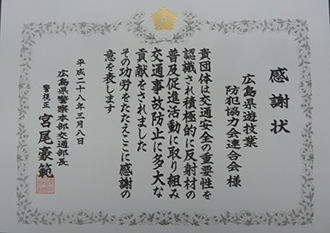 感謝状
広島県遊技業
防犯協力会連合会 様
貴団体は交通安全の重要性を
認識され積極的に反射材の
普及促進活動に取り組み
交通事故防止に多大な
貢献をされました
その功労をたたえここに感謝の
意を表します
平成二十八年三月八日
広島県警察本部交通部長
警視正 宮尾豪範